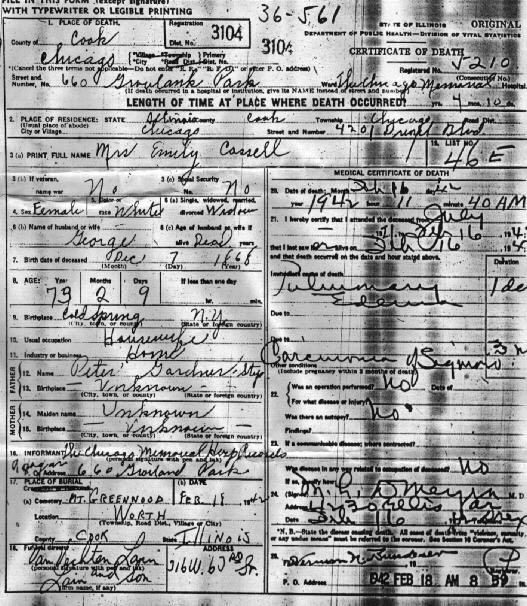 FILL IN THIS FORM (except signature)
WITH TYPEWRITER OR LEGIBLE PRINTING
36-561
1. PLACE OF DEATH.
Registration
Dist. No. 3104
3104
STATE OF ILLINOIS ORIGINAL
DEPARTMENT OF PUBLIC HEALTH—DIVISION OF VITAL STATISTICS
County of Cook
CERTIFICATE OF DEATH
Chicago
Registered No. 5210
(Consecutive No.)
Street and
Number, No. 660 Groveland Park Hospital
(If death occurred in a hospital or institution, give its NAME instead of street and number)
LENGTH OF TIME AT PLACE WHERE DEATH OCCURRED? yrs. 4 mos. 10 ds.
2. PLACE OF RESIDENCE: STATE Illinois County Cook Township Chicago Road Dist.
(Usual place of abode)
City or Village. Chicago Street and Number 4201 Drexel Blvd.
3 (a) PRINT FULL NAME Mrs Emily Cassell
19. LIST NO.
46 E
3 (b) If veteran,
name war No
3 (c) Social Security
No. No
4. Sex Female
5. Color or
race White
6 (a) Single, widowed, married,
divorced Widow
6 (b) Name of husband or wife
George
6 (c) Age of husband or wife if
alive Dead years
7. Birth date of deceased Dec 7 1868
(Month) (Day) (Year)
8. AGE: Years Months Days If less than one day
73 2 9 hr. min.
9. Birthplace Cold Spring N.Y.
(City, town, or county) (State or foreign country)
10. Usual occupation Housewife
11. Industry or business Home
FATHER
12. Name Peter Gardner
13. Birthplace - Unknown -
(City, town, or county) (State or foreign country)
MOTHER
14. Maiden name Unknown
15. Birthplace - Unknown
(City, town, or county) (State or foreign country)
16. INFORMANT The Chicago Memorial Hosp Records
(personal signature with pen and ink)
Address 660 Groveland Park
17. PLACE OF BURIAL (b) DATE
(a) Cemetery MT. GREENWOOD FEB 18 1942
Location WORTH
(Township, Road Dist., Village or City)
County COOK State ILLINOIS
18. Funeral director ADDRESS
(personal signature with pen and ink)
Lain and Son 316 W. 63rd St.
(firm name, if any)
MEDICAL CERTIFICATE OF DEATH
20. Date of death: Month Feb 16 day
year 1942 hour 11 minute 40 AM
21. I hereby certify that I attended the deceased from July
Feb 16
that I last saw alive on Feb 16
and that death occurred on the date and hour stated above.
Duration
Immediate cause of death
Pulmonary
Edema
Due to
Due to
Carcinoma of Sigmoid
Other conditions
(Include pregnancy within 3 months of death)
22. Was an operation performed? No Date of
For what disease or injury?
Was there an autopsy? No
Findings?
23. If a communicable disease; where contracted?
Was disease in any way related to occupation of deceased? No
If so, specify how
24. (Signed) M.D.
Address 4230 Ellis
Date Feb 16
*N. B.—State the disease causing death. All cases of death from "violence, casualty
or any undue means" must be referred to the coroner. See Section 10 Coroner's Act.
25. Herman N. Bundesen
P. O. Address
1942 FEB 18 AM 8 59